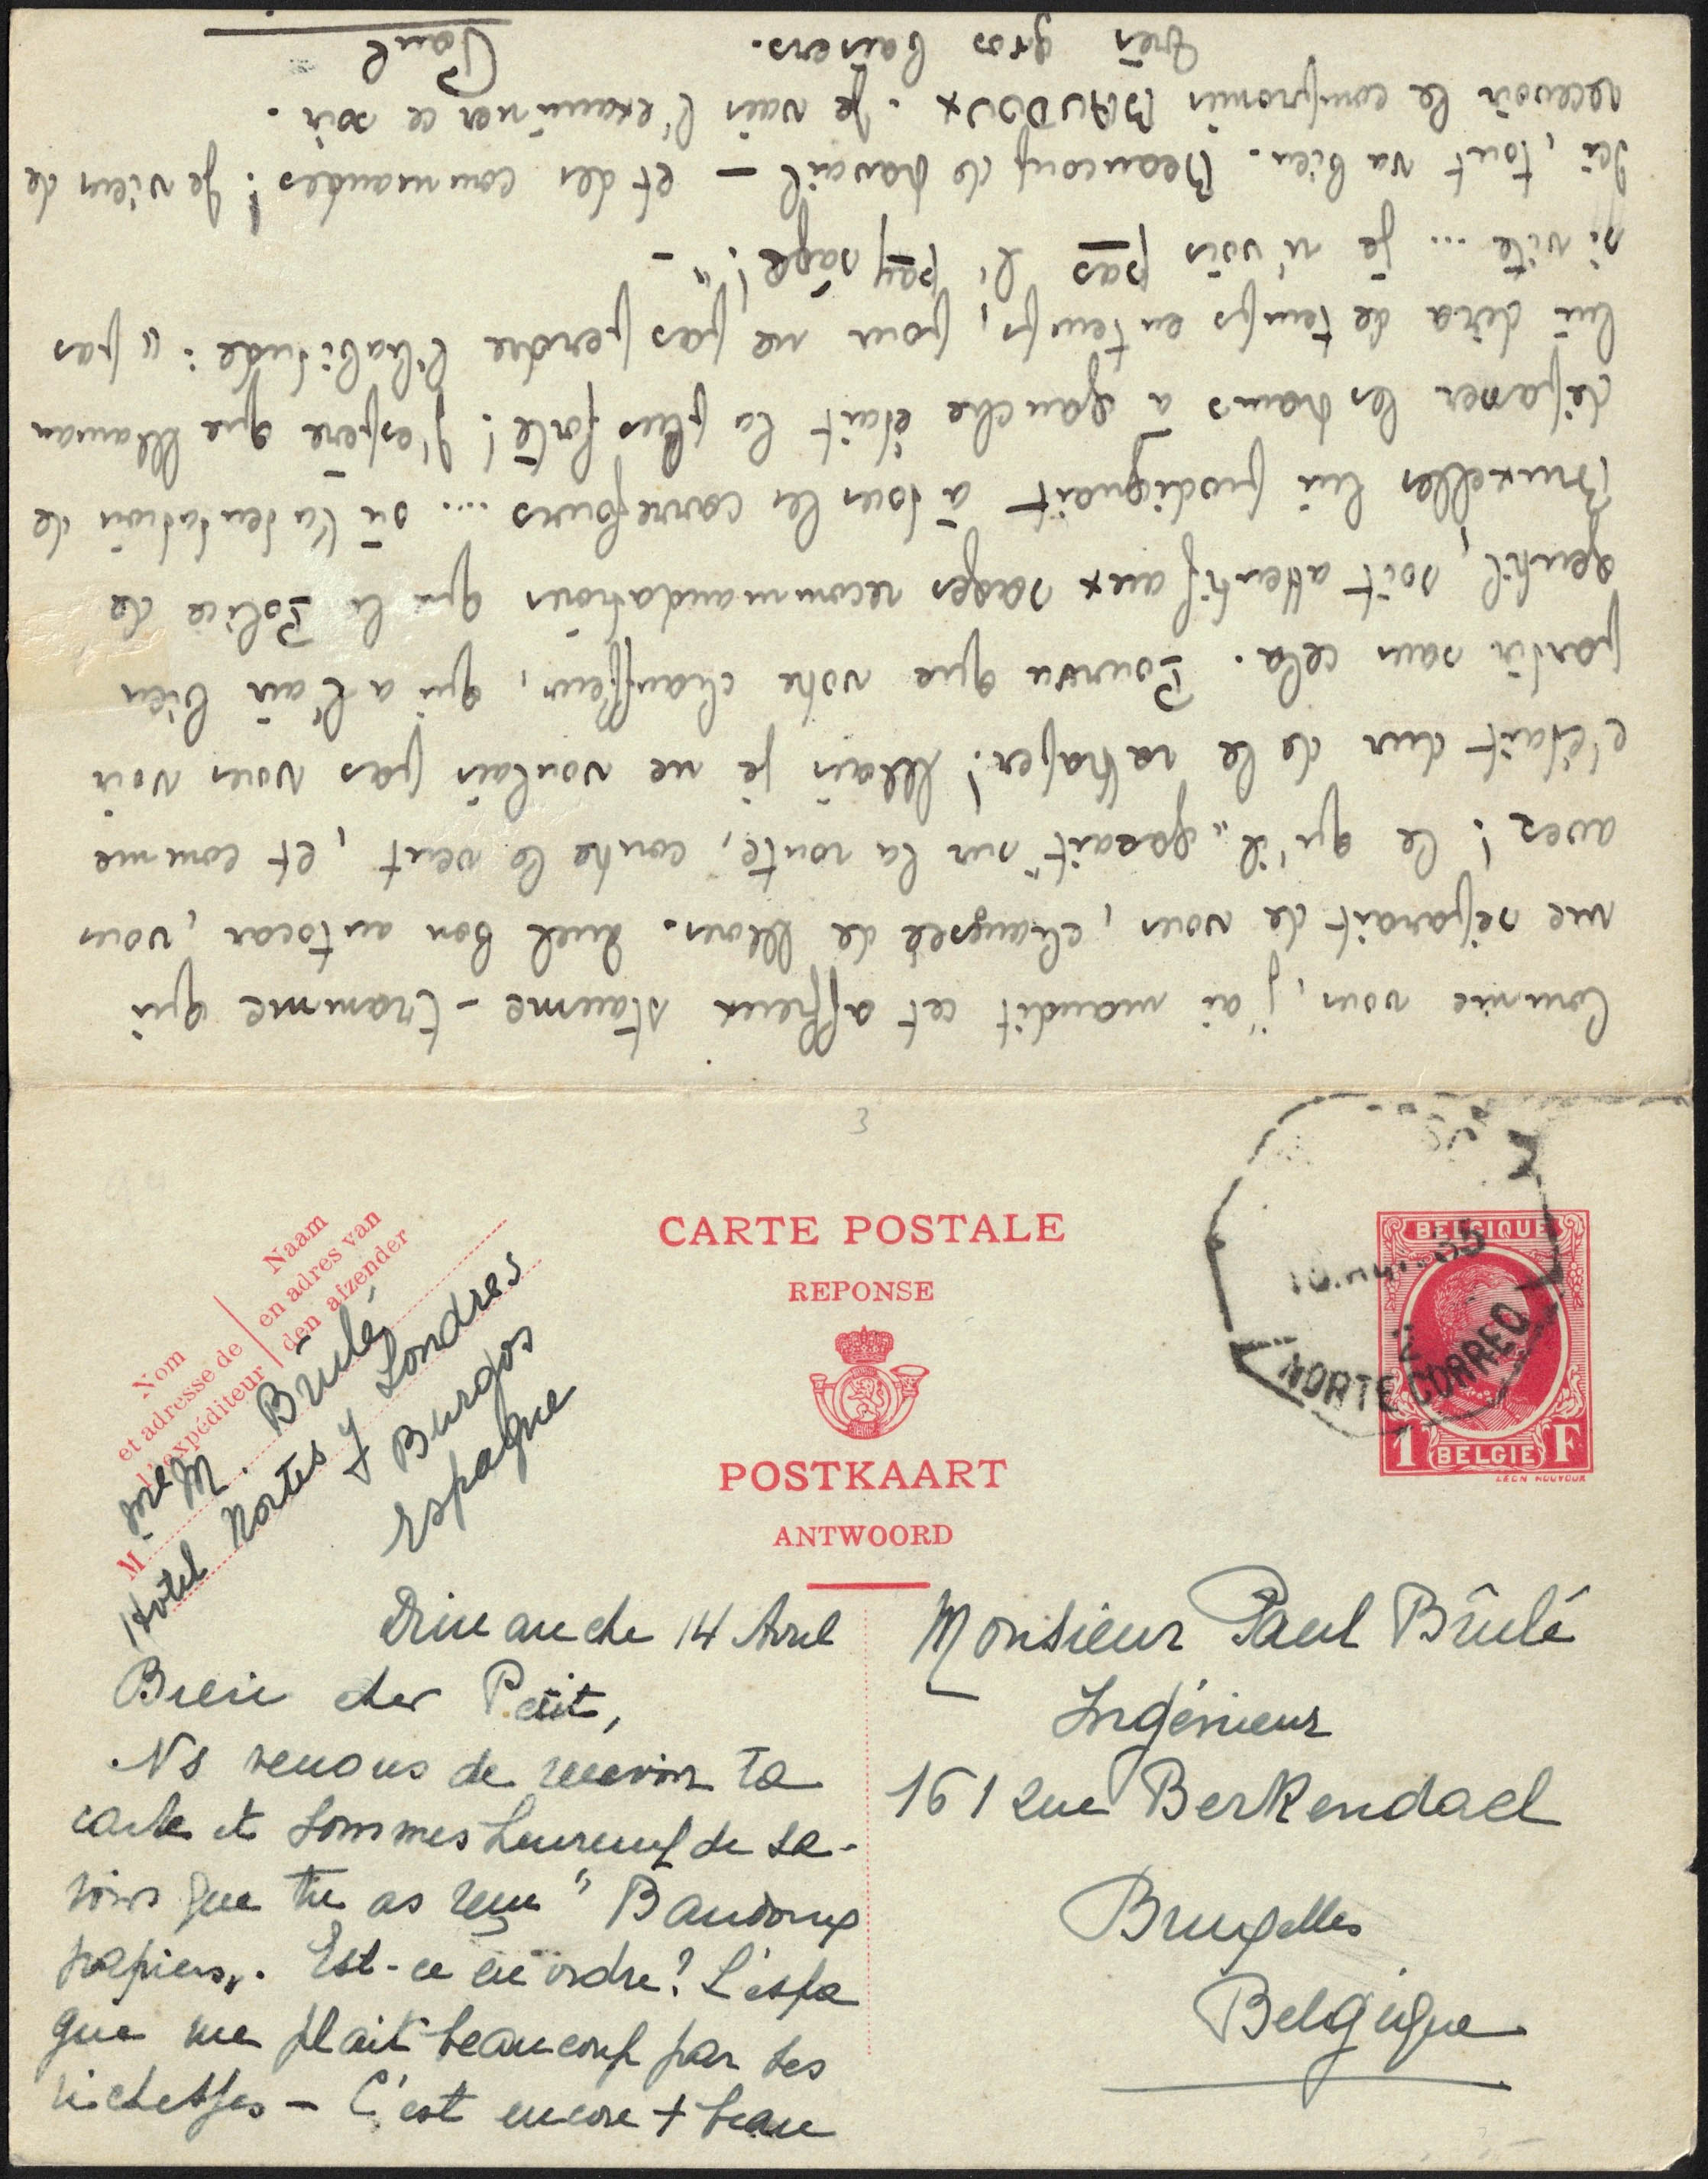 Comme vous, j'ai maudit cet affreux stoume-tramme qui
me séparait de vous, chaussée de Mons. Quel bon autocar, vous
avez ! Ce qu'il "gazait" sur la route, contre le vent, et comme
c'était dur de le rattraper! Mais je ne voulais pas vous voir
partir sans cela. Pourvu que votre chauffeur, qui a l'air bien
gentil, soit attentif aux sages recommandations que la Police de
Bruxelles lui prodiguait à tous les carrefours .... où la tentation de
dépasser les trams à gauche était la plus forte! J'espère que Maman
lui dira de temps en temps, pour ne pas perdre l'habitude : "pas
si vite ... je n'vois pas l' paysage!" -
Ici, tout va bien. Beaucoup de travail - et des commandes! Je viens de
recevoir le compromis BAUDOUX. Je vais l'examiner ce soir.
Très gros baisers.
Paul
CARTE POSTALE
REPONSE
POSTKAART
ANTWOORD
BELGIQUE
35
NORTE CORREO
2
1 F
BELGIE
LEON HOUYOUX
Nom
et adresse de
l'expéditeur
Naam
en adres van
den afzender
M
Me M. Brûlé
Hôtel Nortes y Londres
Burgos
Espagne
Dimanche 14 Avril
Bien cher Petit,
Ns venons de recevoir ta
carte et sommes heureux de sa-
voir que tu as reçu "Baudoux
papiers". Est-ce en ordre? L'Espa
gne me plait beaucoup par ses
richesses - C'est encore + beau
Monsieur Paul Brûlé
Ingénieur
161 rue Berkendael
Bruxelles
Belgique